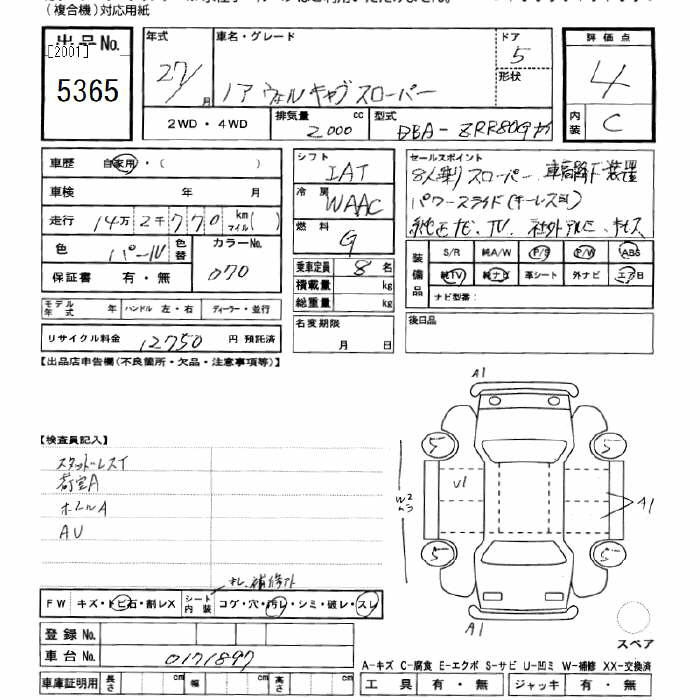 (複合機)対応用紙
出品No.
[2001]
5365
年式 車名・グレード ドア
27/月 ノア ウェルキャブ スローパー 5
形状
2WD・4WD 排気量 2000 cc 型式 DBA-ZRR80G
評価点
4
内装 C
車歴 自家用・( )
車検 年 月
走行 14万2千770 km マイル( )
色 パール 色替 カラーNo. 070
保証書 有・無
モデル年式 年 ハンドル 左・右 ディーラー・並行
リサイクル料金 12750 円 預託済
シフト IAT
冷房 WAAC
燃料 G
乗車定員 8 名
積載量 kg
総重量 kg
名変期限
月 日
セールスポイント
8人乗り スローパー 車高降下装置
パワースライド(キーレス可)
純正ナビ、TV、社外アルミ、キーレス
装備品 S/R 純A/W P/S P/W ABS
純TV 純ナビ 革シート 外ナビ エアB
ナビ型番:
後日品
【出品店申告欄(不良箇所・欠品・注意事項等)】
【検査員記入】
スタッドレスイ
荷室A
ホイルA
AU
A1
5 5
W2 U1 A1
5 5
A1
スペア
キレ、補修介
FW キズ・トビ石・割レX シート内装 コゲ・穴・汚レ・シミ・破レ・スレ
登録No.
車台No. 0171897
車庫証明用 長さ cm 幅 cm 高さ cm
A-キズ C-腐食 E-エクボ S-サビ U-凹ミ W-補修 XX-交換済
工具 有・無 ジャッキ 有・無